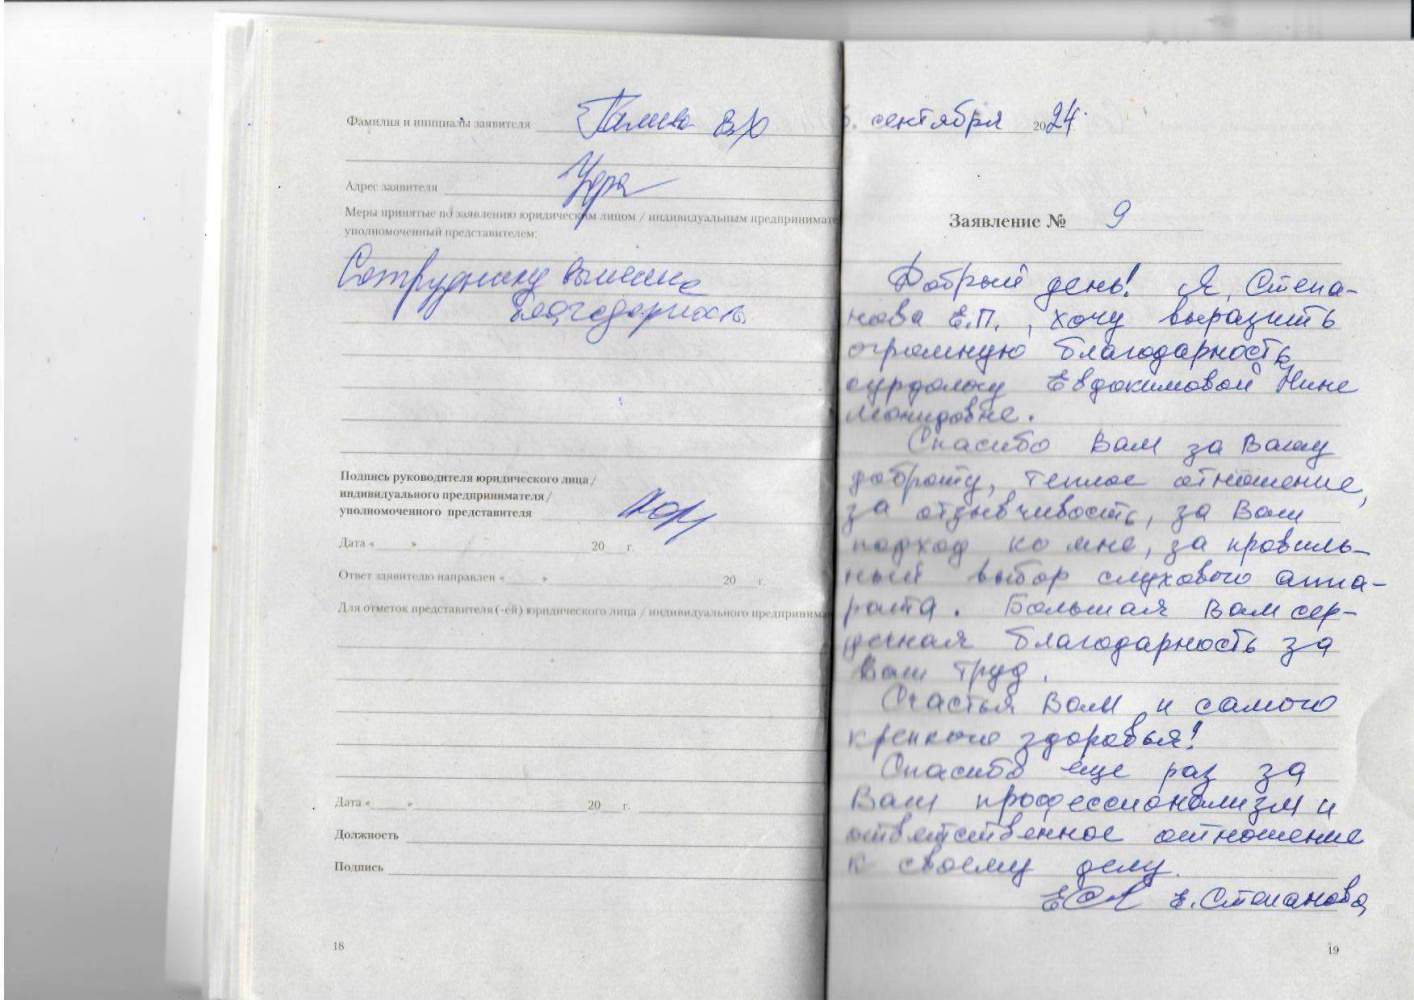 Фамилия и инициалы заявителя
Адрес заявителя Уфа
Меры принятые по заявлению юридическим лицом / индивидуальным предпринимате
уполномоченный представителем:
Сотруднику вынесена
благодарность
Подпись руководителя юридического лица /
индивидуального предпринимателя /
уполномоченного представителя
Дата « » 20 г.
Ответ заявителю направлен « » 20 г.
Для отметок представителя (-ей) юридического лица / индивидуального предпринима
Дата « » 20 г.
Должность
Подпись
18
сентября 2024
Заявление № 9
Добрый день! Я, Степа-
нова Е.П., хочу выразить
огромную благодарность
сурдологу Евдокимовой Нине
Спасибо Вам за Вашу
доброту, теплое отношение,
за отзывчивость, за Ваш
подход ко мне, за правиль-
ный выбор слухового аппа-
рата. Большая Вам сер-
дечная благодарность за
Ваш труд.
Счастья Вам и самого
крепкого здоровья!
Спасибо еще раз за
Ваш профессионализм и
ответственное отношение
к своему делу.
Е. Степанова
19